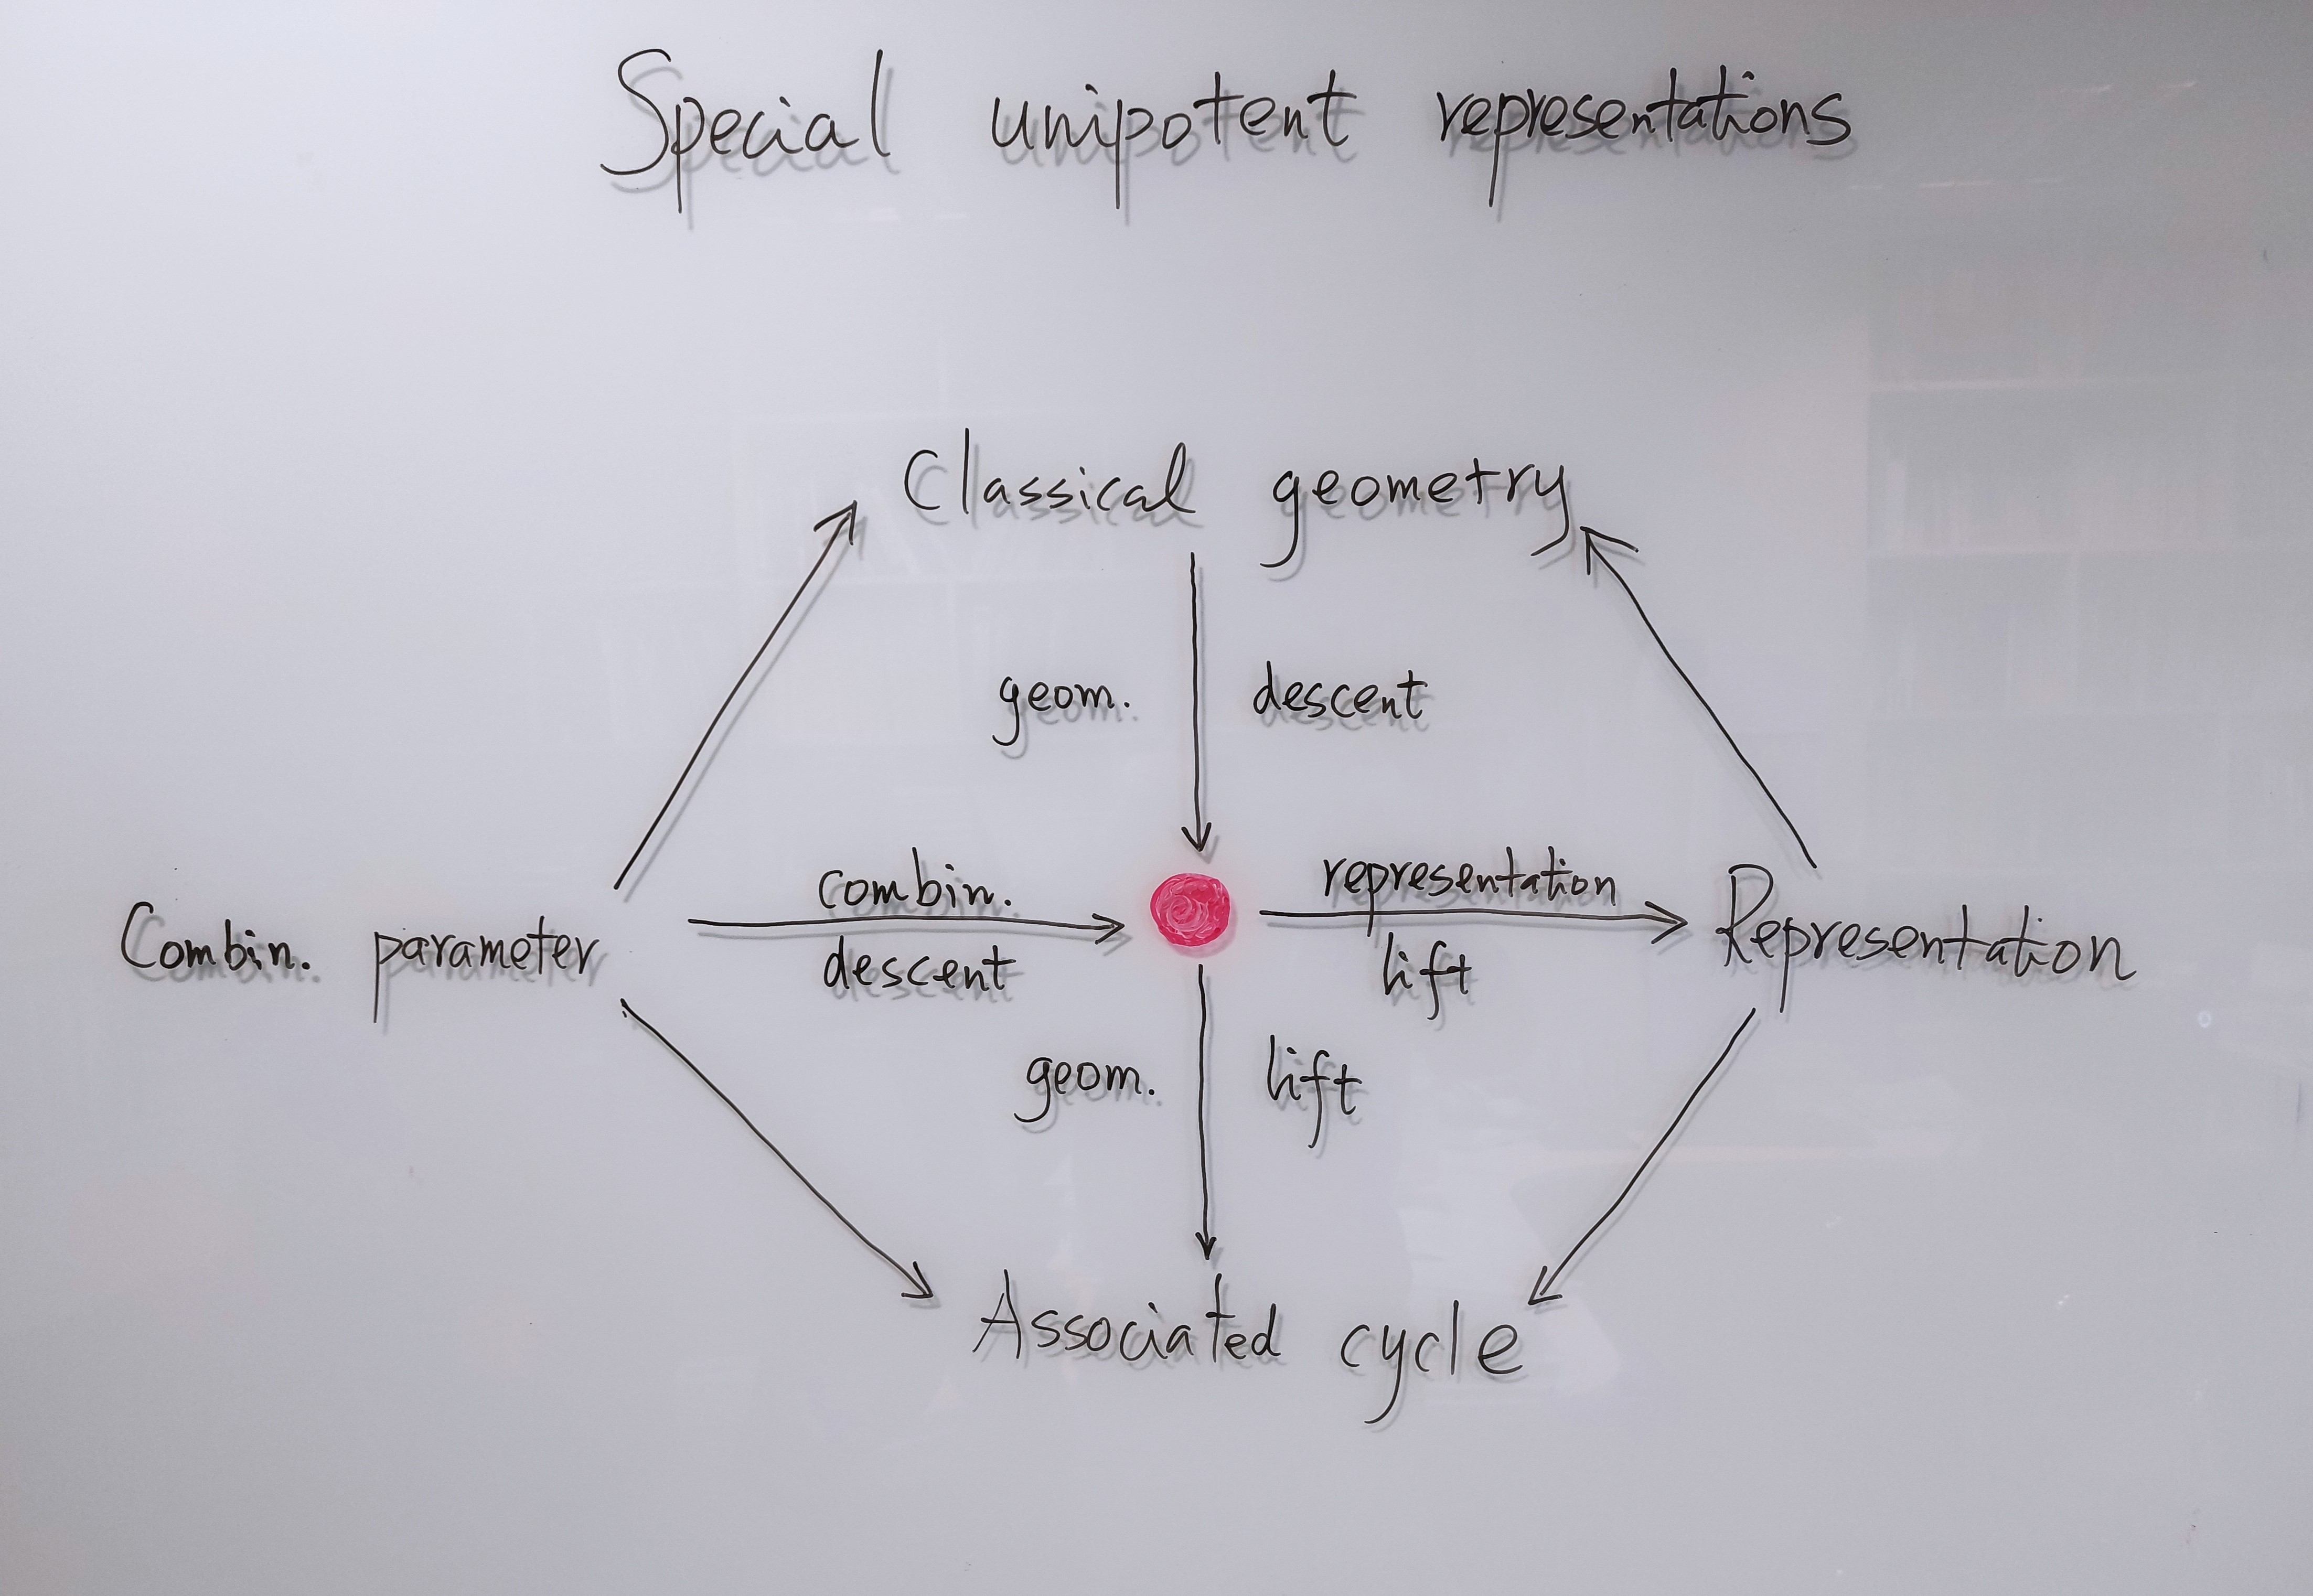 Special unipotent representations
Classical geometry
geom. descent
combin. representation
Combin. parameter descent lift Representation
geom. lift
Associated cycle